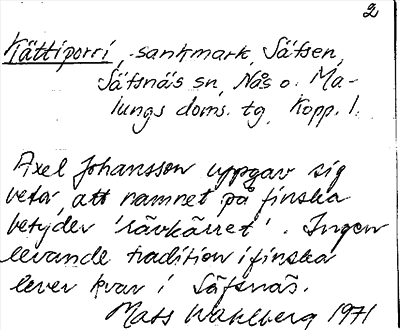 2
Kättiporri, sankmark, Säfsen,
Säfsnäs sn, Nås o. Ma-
lungs doms. tg, Kopp. l.
Axel Johansson uppgav sig
veta, att namnet på finska
betyder 'rävkärret'. Ingen
levande tradition i finska
lever kvar i Säfsnäs.
Mats Wahlberg 1971